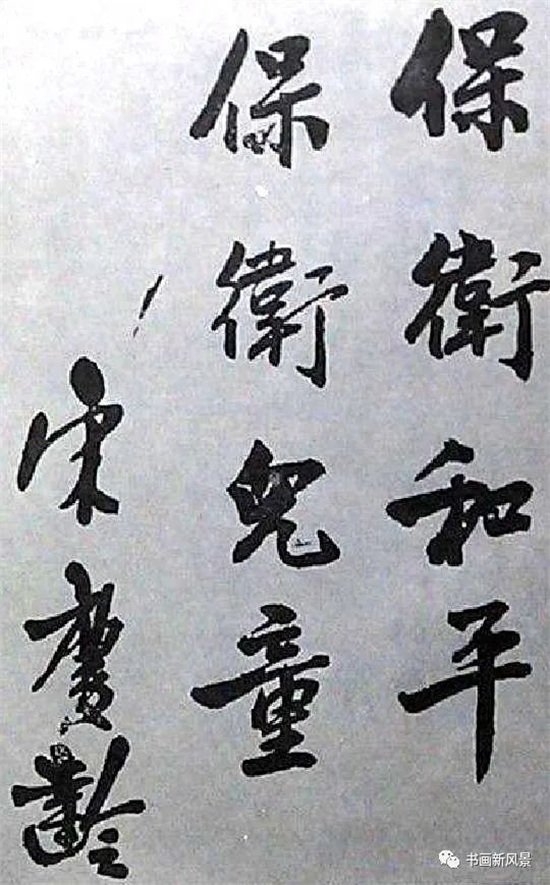 保衛和平
保衛兒童
宋慶齡
书画新风景